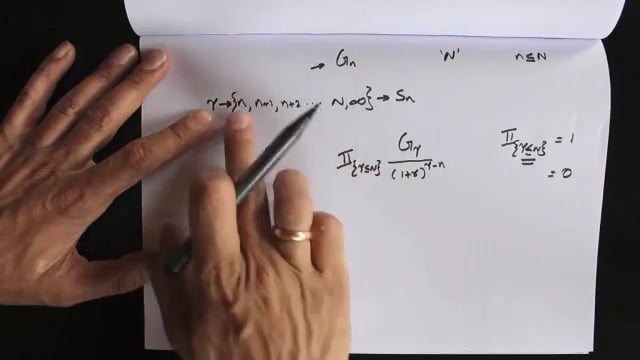 → Gn 'N' n≤N
γ→{n, n+1, n+2 .... N,∞} → Sn
𝕀{γ≤N} Gγ/(1+r)^γ-n 𝕀{γ≤N} = 1
= 0